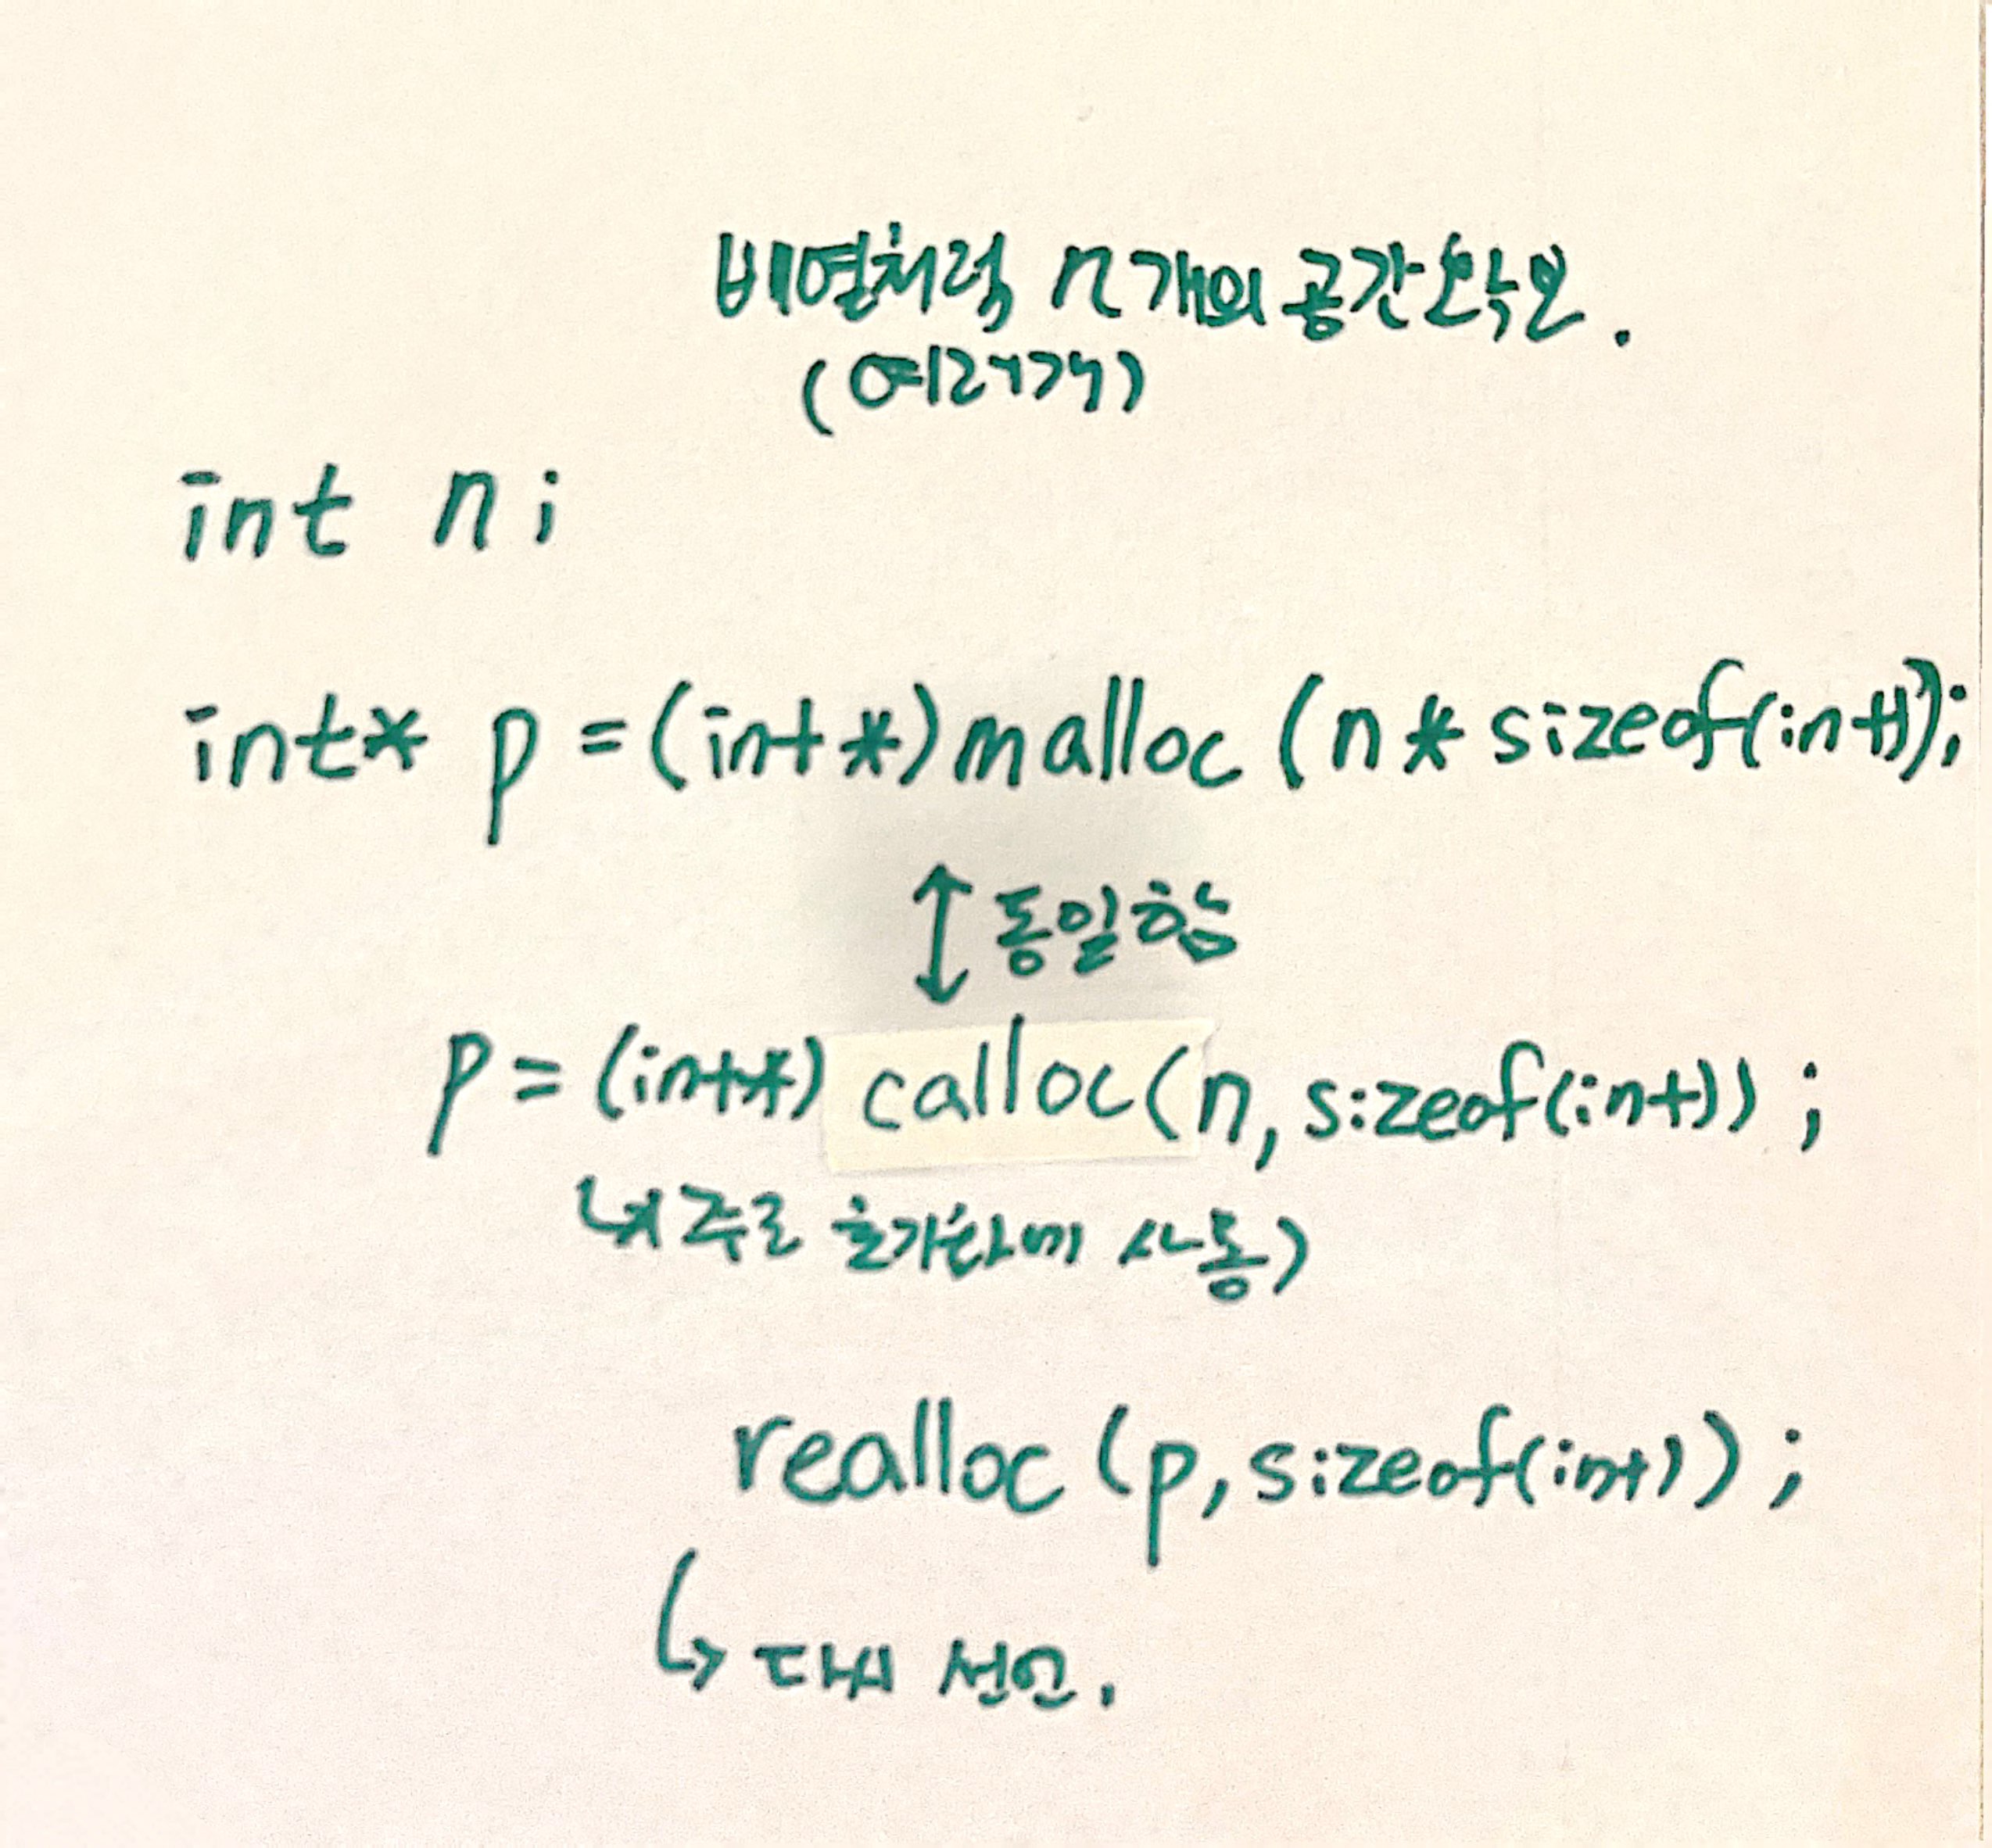 배열처럼 n개의 공간 확보.
(여러개)
int n;
int* p = (int*)malloc (n * sizeof(int));
↕ 동일함
p = (int*) calloc(n, sizeof(int)) ;
주로 초기화에 사용)
realloc (p, sizeof(int)) ;
↳ 다시 선언.